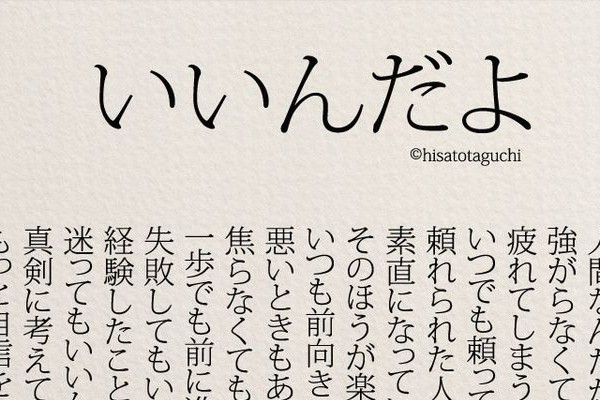 いいんだよ
©hisatotaguchi
人間なんだ
強がらなくて
疲れてしまう
いつでも頼って
頼れられた人
素直になって
そのほうが楽
いつも前向き
悪いときもあ
焦らなくても
一歩でも前に
失敗してもい
経験したこと
迷ってもいいん
真剣に考えて
もっと自信を